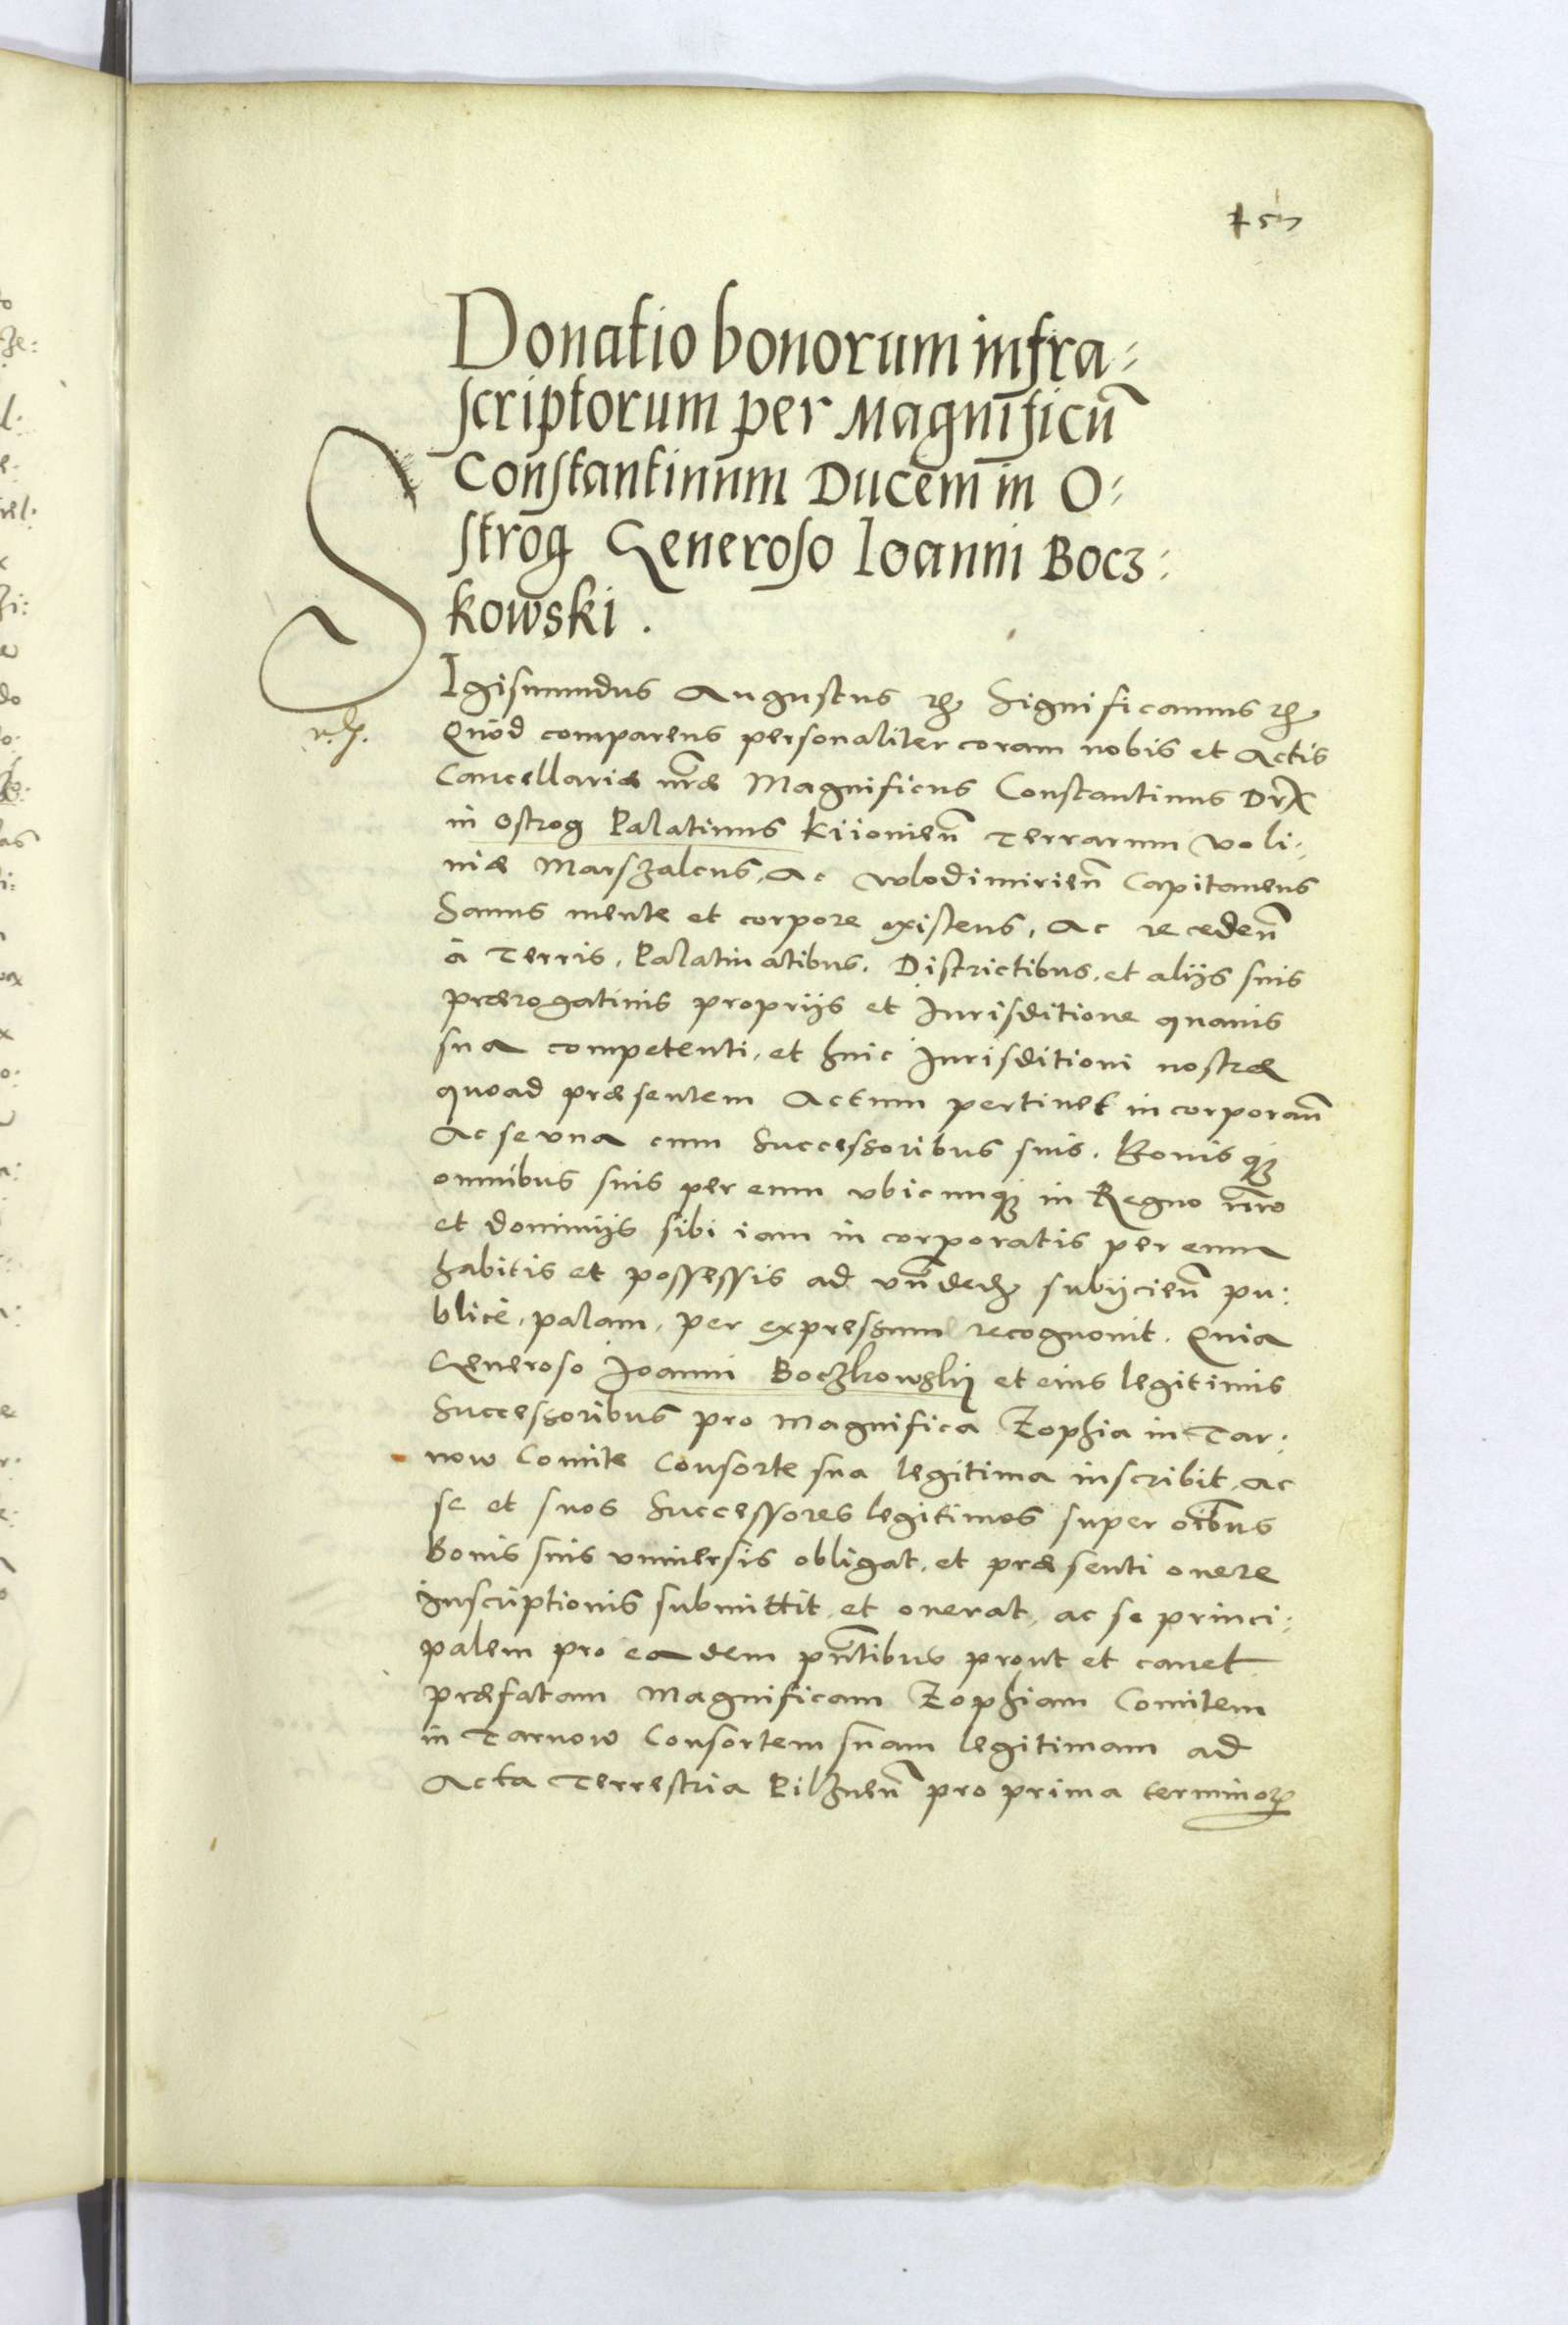 157
Donatio bonorum infra⸗
scriptorum per Magnificū
Constantinum Ducem in O⸗
strog Generoso Ioanni Bocz⸗
kowski.
SIgismundus Augustus etc. Significamus etc.
Quòd comparens personaliter coram nobis et Actis
Cancellariæ nr̃æ Magnificus Constantinus Dux
in Ostrog Palatinus Kiiovieñ Terrarum Voli⸗
niæ Marszalcus, Ac Wlodimirieñ Capitaneus
Sanus mente et corpore existens, Ac recedeñ
à Terris, Palatinatibus, Districtibus, et alijs suis
prærogativis proprijs et Jurisditione quavis
sua competenti, et huic Jurisditioni nostræ
quoad præsentem Actum pertinet incorporañ
Ac se vna cum Successoribus suis. Bonisq́ꝫ
omnibus suis per eum vbicunqꝫ in Regno nr̃o
et dominijs sibi iam incorporatis per eum
habitis et possessis ad subijcieñ pu⸗
blicè, palam, per expressum recognouit. Quia
Generoso Joanni Boczkowskij et eius legitimis
Successoribus pro Magnifica Zophia in Tar⸗
now Comite Consorte sua legitima inscribit, ac
se et suos Successores legitimos super oĩbus
Bonis suis vniuersis obligat, et præsenti onere
inscriptionis submittit et onerat, ac se princi⸗
palem pro eadem pñtibus prout et cauet
præfatam Magnificam Zophiam Comitem
in Tarnow Consortem suam legitimam ad
Acta Terrestria Pilzneñ pro prima terminoꝝ